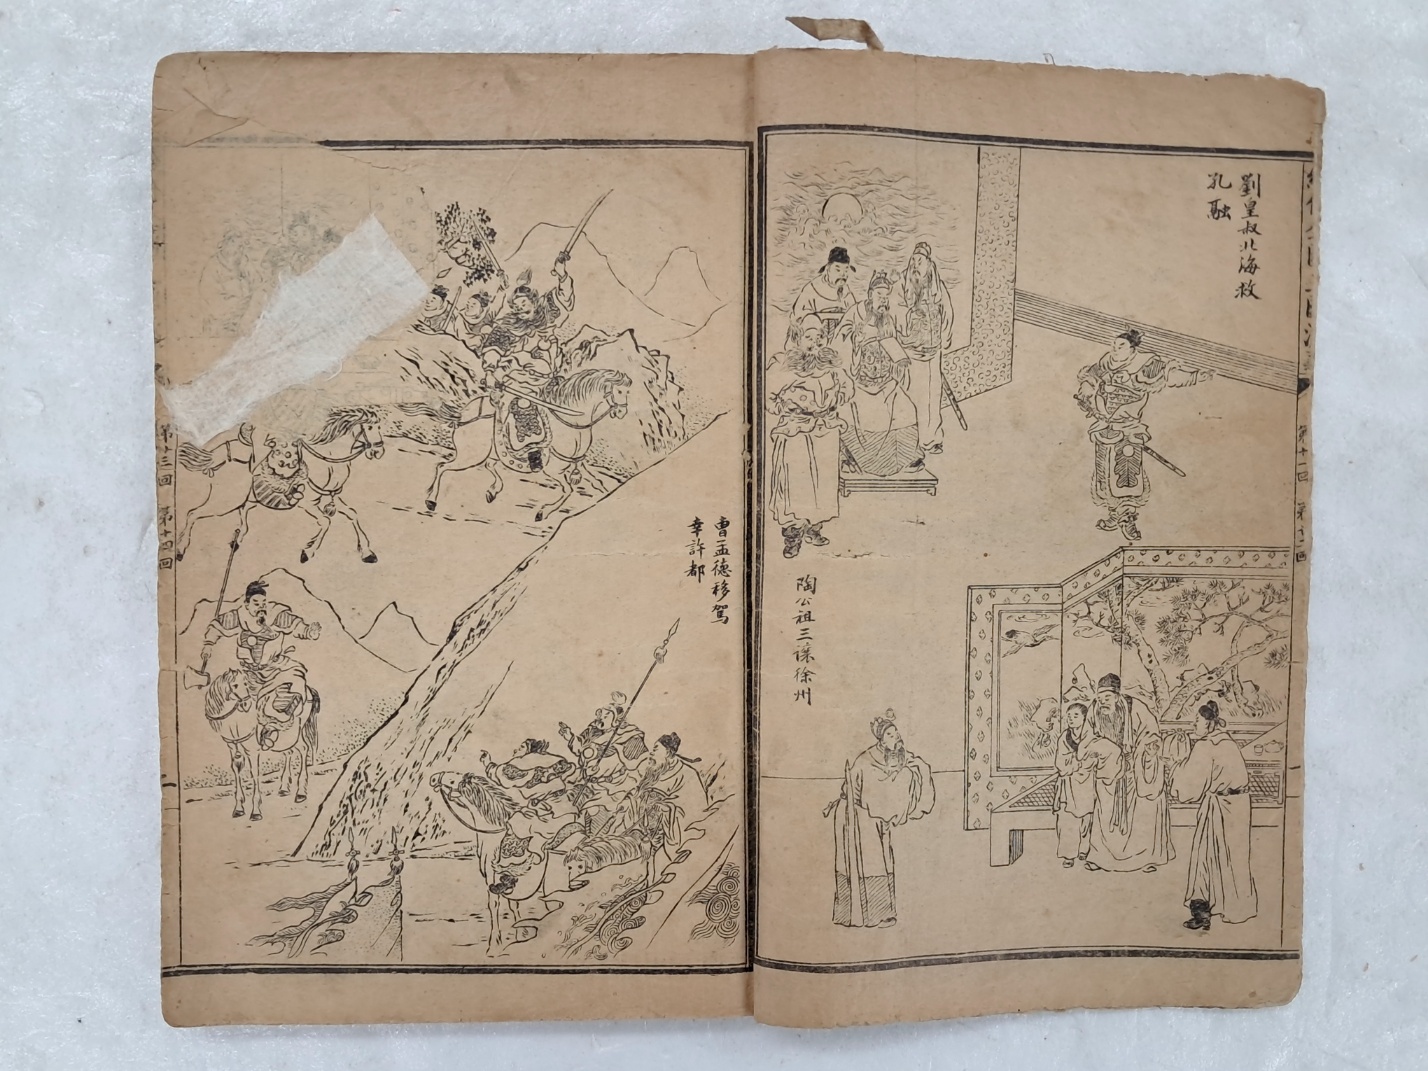 劉皇叔北海救
孔融
第十一回 第十二回
陶公祖三讓徐州
曹孟德移駕
幸許都
第十三回 第十四回
二